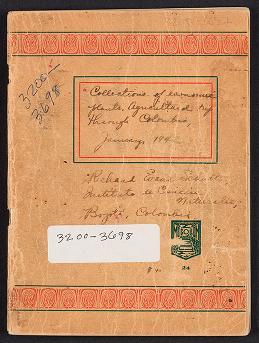 3200-
3698
"Collections of economic
plants, Agricultural trip
through Colombia,
January, 194
Richard Evans Schultes
Instituto de Ciencias
Naturales,
Bogotá, Colombia
3200-3698
24